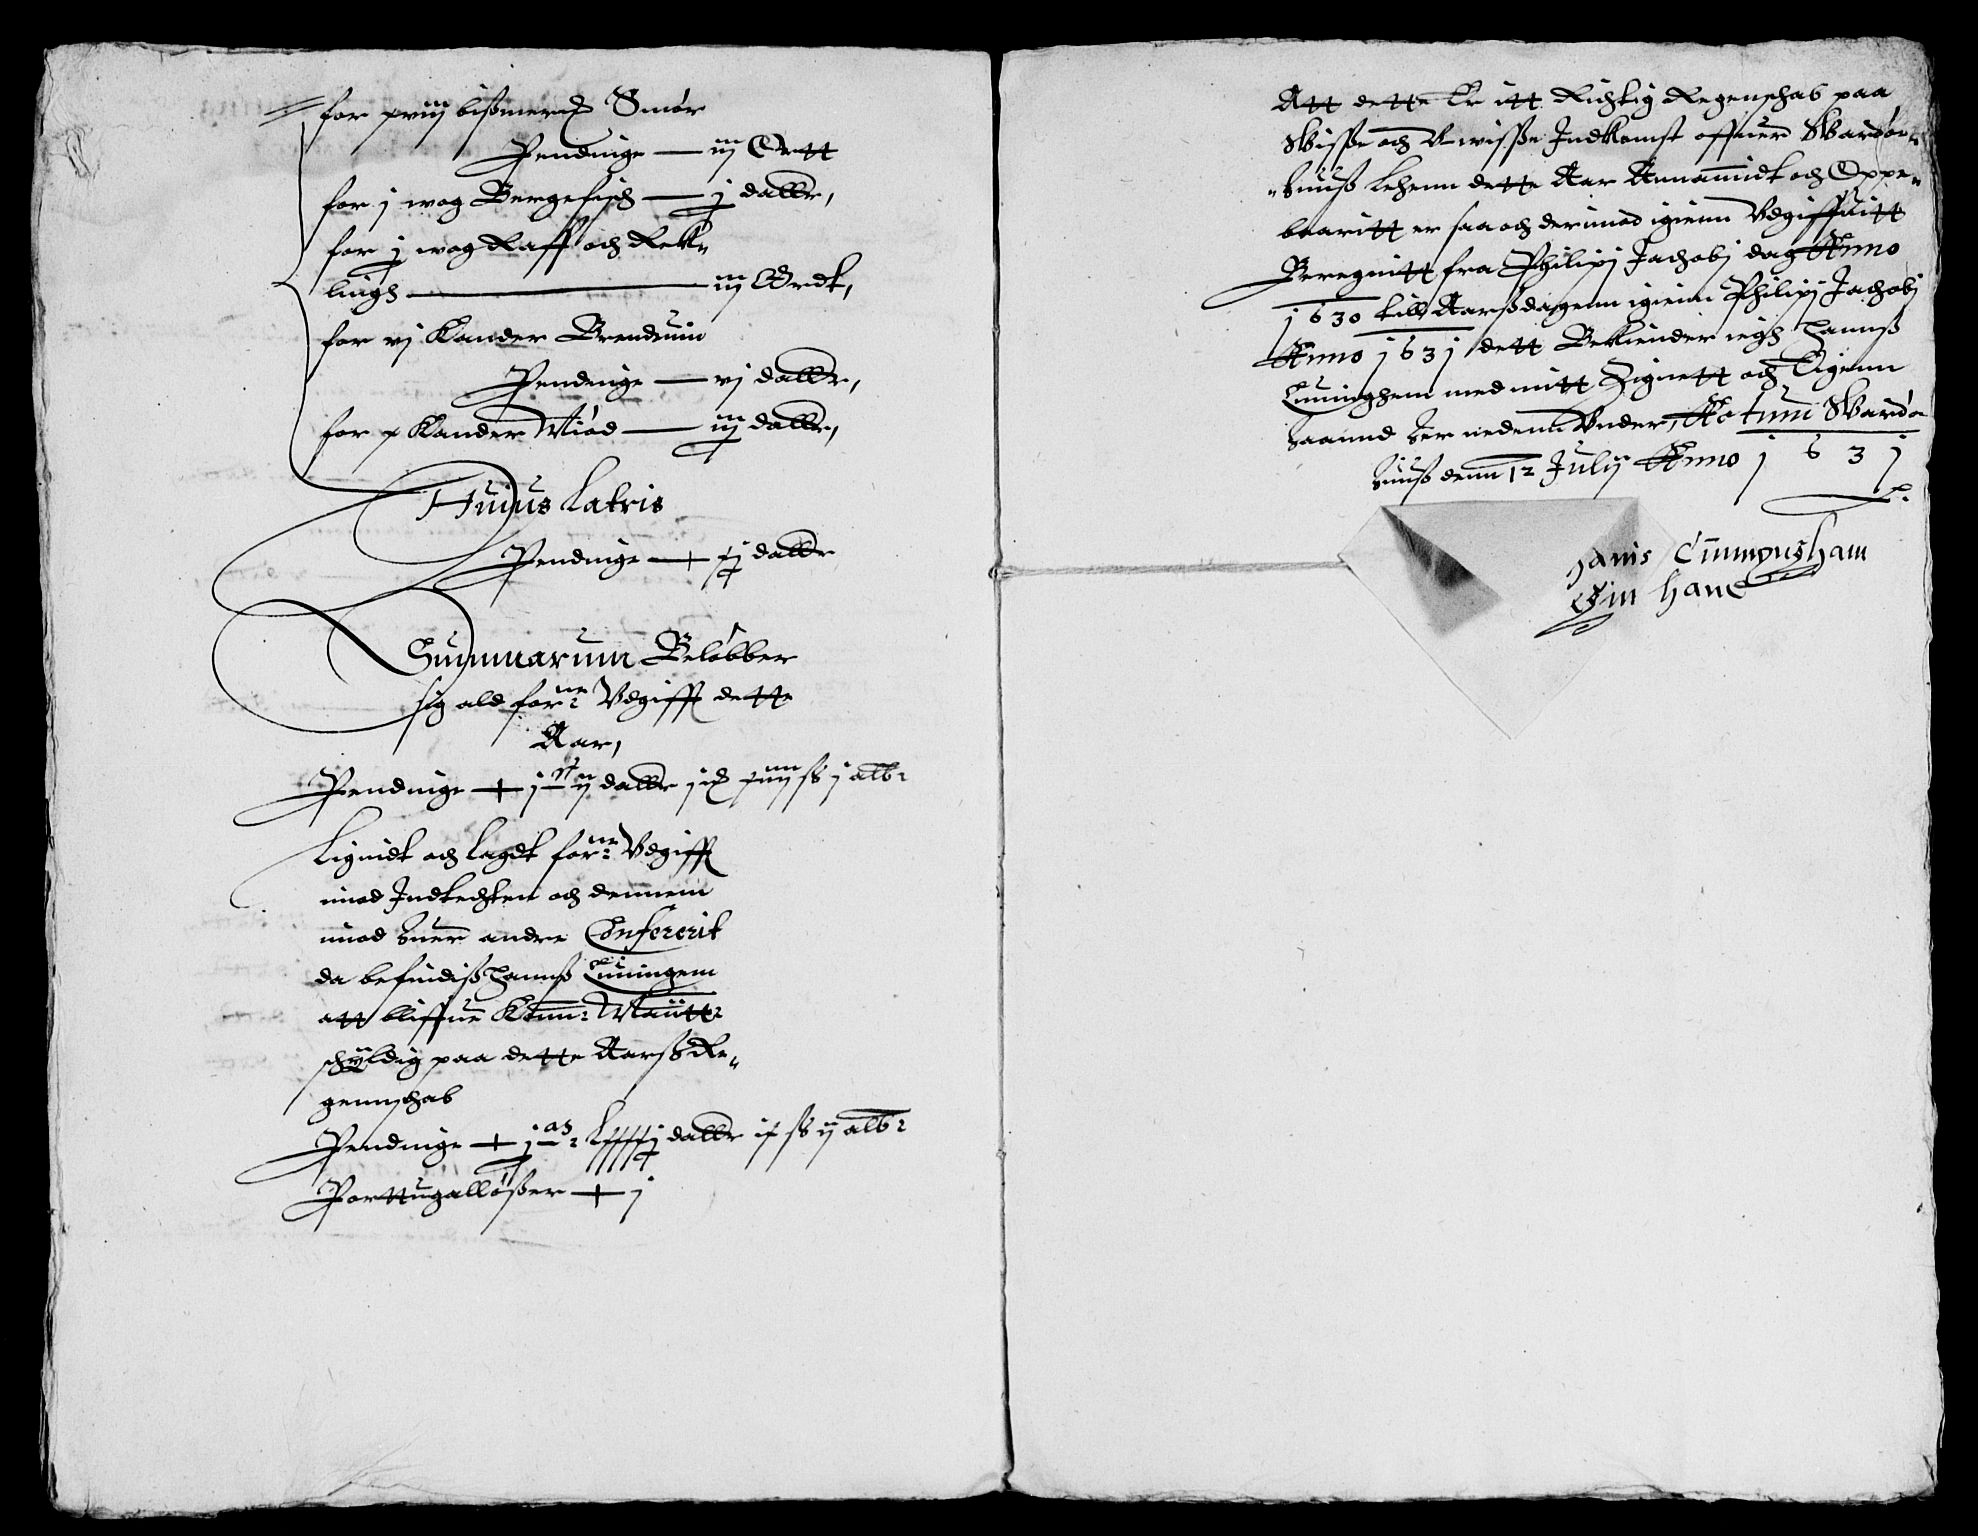 for xviij bißmerp Smór
Pendinge — iij Ortt
for j wog Bergefisch — j daller,
for j wog Raff och Rek-
lingh — iij Ordt,
for vj Kander Brendeuin
Pendinge — vj daller,
for x Kander Miód — iij daller,
Huius Latris
Pendinge — daller
Summarum Belóbber
sig ald forne: Vdgifft dette
Aar,
Pendinge — daller ß j alb:
Lignidt och lagdt forne: Vdgifft
mod Indtechten och dennem
mod huer andre Confererit
da befindiß Hannß Cuningem
att bliffue Konn: Maiitt:
schÿldig paa dette Aarß Re-
gennschab
Pendinge — daller ß ij alb:
Porttugallóßer — j
Att dette Er itt Richtig Regenschab paa
Wisse och V-wisse Indkomst offuer Wardór-
huuß Lehenn dette Aar Annammidt och Oppe-
baaritt er saa och derimod igienn Vdgiffuitt
Beregnitt fra Philipj Jachobj dag Anno
1630 till Aarßdagenn igienn Philipj Jachobj
Anno 1631 dett Bekiender iegh Hannß
Cuninghem med mitt Zignett och Eigenn
haannd her nedenn Vnder, Actum Wardó-
huuß denn 12 Julij Anno 1631
Hanis Cunnengham
Ein hand